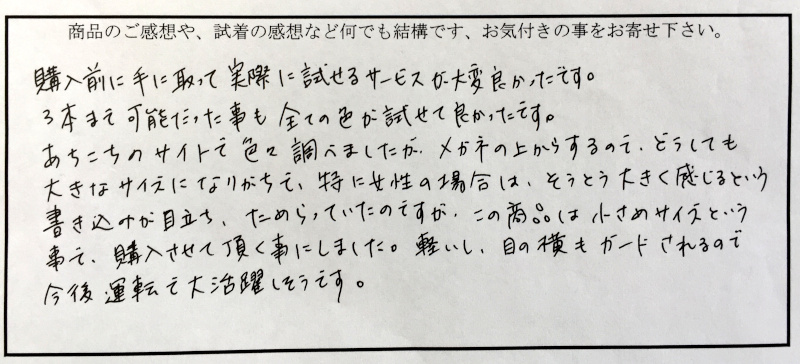 商品のご感想や、試着の感想など何でも結構です、お気付きの事をお寄せ下さい。
購入前に手に取って実際に試せるサービスが大変良かったです。
3本まで可能だった事も全ての色が試せて良かったです。
あちこちのサイトで色々調べましたが、メガネの上からするので、どうしても
大きなサイズになりがちで、特に女性の場合は、そうとう大きく感じるという
書き込みが目立ち、ためらっていたのですが、この商品は小さめサイズという
事で、購入させて頂く事にしました。軽いし、目の横もガードされるので
今後運転で大活躍しそうです。